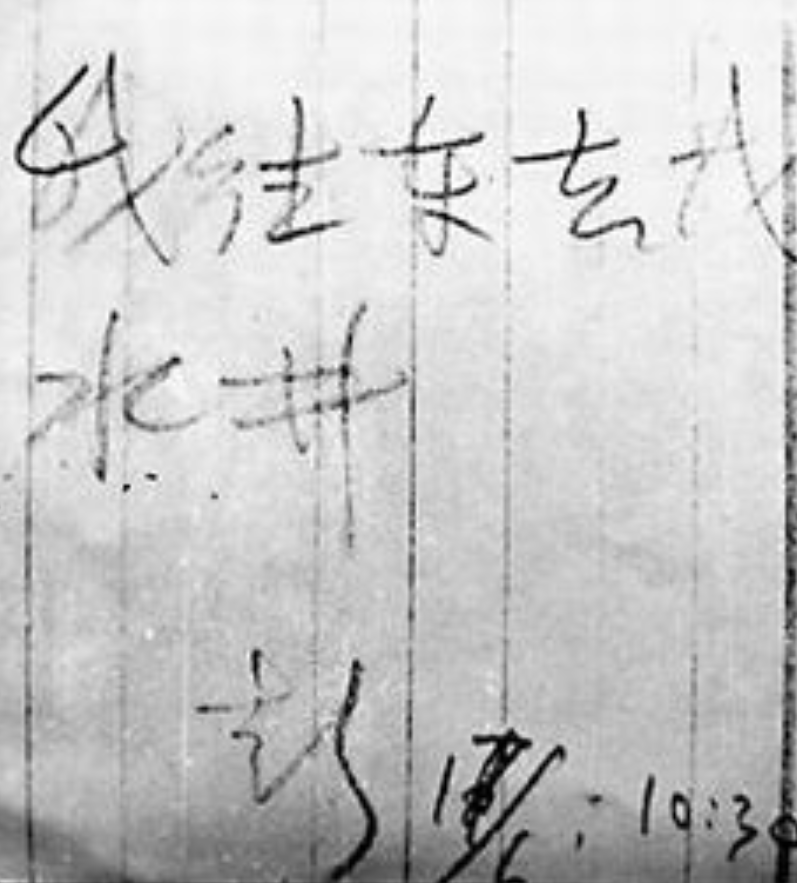 我往东去找
水井
彭 17/6 10:30